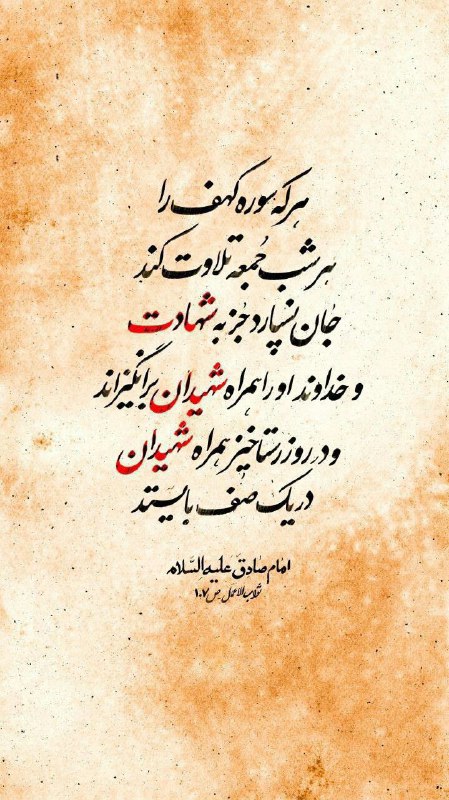 هر که سوره کهف را
هر شب جُمعه تلاوت کند
جان نسپارد جُز به شهادت
و خداوند او را همراه شهیدان برانگیزاند
و در روز رستاخیز همراه شهیدان
در یک صف بایستد
امام صادق علیه السّلام
ثواب الاعمال ص ۱۰۷